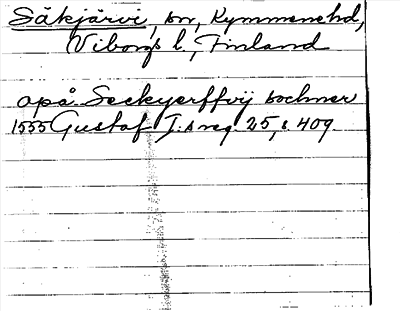 Säkjärvi, sn, Kymmenehd,
Viborgs l., Finland
apå Seekyerffvij sochner
1555 Gustaf I:s reg. 25, s. 409.